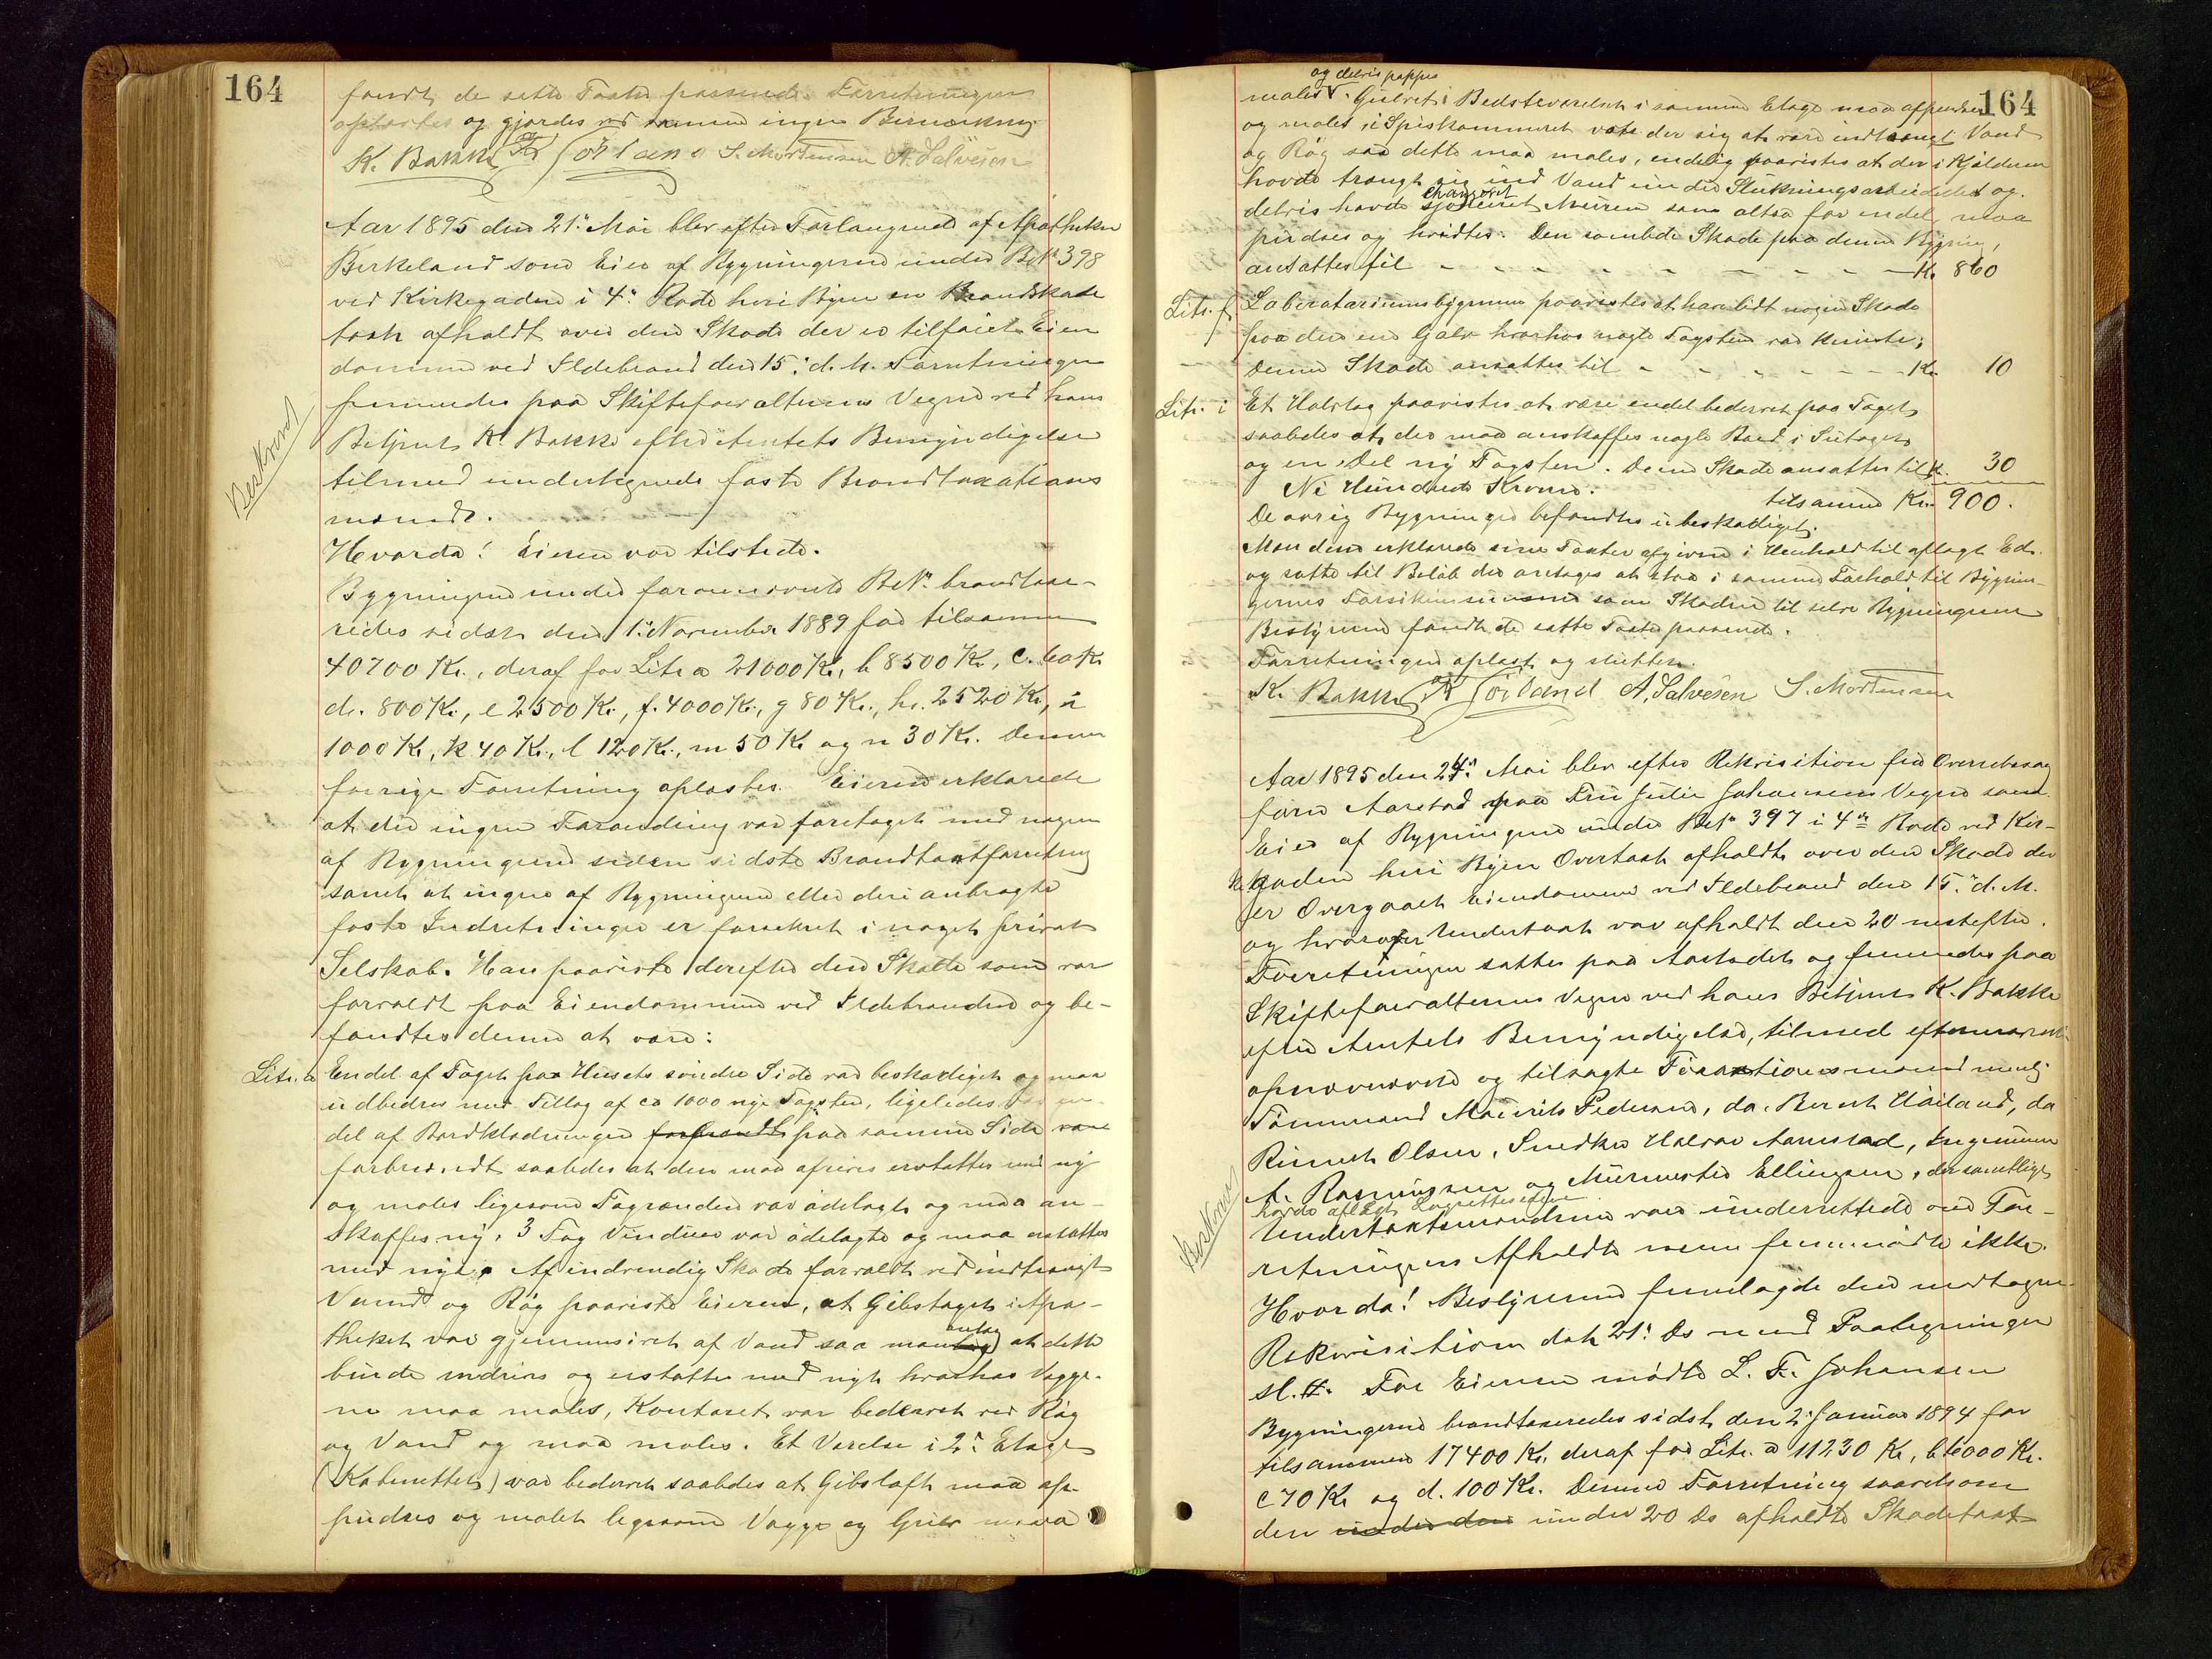 164
fandt de satte Taxter passende. Forretningen
oplæstes og gjordes ved samme ingen Bemærkning.
K. Bakke K Törland S. Mortensen A. Salvesen
Aar 1895 den 21. Mai blev efter Forlangende af Apotheker
Berkeland som Eier af Bygningerne under BrNo 398
ved Kirkegaden i 4. Rode heri Byen en Brandskade
taxt afholdt over den Skade der er tilføiet Eien
dommen ved Ildebrand den 15. d. M. Forretningen
fremmedes paa Skifteforvalterens Vegne ved hans
Betjent K. Bakke efter Amtets Bemyndigelse
tilmed undertegnede faste Brandtaxations
mænd.
Beskrevet
Hvorda! Eieren var tilstede.
Bygningerne under forannævnte BrNo. brandtaxe-
redes sidst den 1. November 1889 for tilsammen
40700 Kr., deraf for Litr a 21000 Kr, b 8500 Kr, c. 60 Kr
d. 800 Kr, e 2500 Kr, f. 4000 Kr., g 80 Kr., h. 2520 Kr, i
1000 Kr, k 40 Kr., l 120 Kr., m 50 Kr og n 30 Kr. Denne
forrige Forretning oplæstes. Eieren erklærede
at der ingen Forandring var foretaget med nogen
af Bygningerne siden sidste Brandtaxtforretning
samt at ingen af Bygningerne eller deri anbragte
faste Indretninger er forsikret i noget privat
Selskab. Han paaviste derefter den Skade som var
forvoldt paa Eiendommen ved Ildebranden og be-
fandtes denne at være:
Litr. a Endel af Taget paa Husets søndre Side var beskadiget og maa
udbedres med Tillæg af ca 1000 nye Tagsten, ligeledes var en-
del af Bordklædningen forbrændt paa samme Side var
forbrændt saaledes at den maa afrives erstattes med ny
og males ligesom Tagrenden var ødelagt og maa an-
skaffes ny, 3 Fag Vinduer var ødelagte og maa erstattes
med nye. Af indvendig Skade forvoldt ved indtrængt
Vand og Røg paaviste Eieren, at Gibstaget i Apo-
theket var gjennemsivet af Vand saa man antog at dette
burde nedrives og erstattes med nyt hvorhos Vægge-
ne maa males, Kontoret var bedærvet ved Røg
og Vand og maa males. Et Værelse i 2. Etage
(Kabinettet) var bedærvet saaledes at Gibsloft maa af-
pudses og malet ligesom Vægge og Gulv maa
164
og delvis pappes
males. Gulvet i Bedsteværelset i samme Etage maa afpudses
og males, i Spiskammeret viste der sig at være indtrængt Vand
og Røg saa dette maa males, endelig paavistes at der i Kjælderen
havde trængt sig ind Vand under Slukningsarbeidet og
delvis havde Muren som altsaa for endel maa
pudses og hvidtes. Den samlede Skade paa denne Bygning
ansattes til - - - - - - - - Kr. 860
Litr. f Laboratoriumsbygningen paavistes at have lidt nogen Skade
paa den ene Gavl hvorhos nogle Tagsten var knuste;
denne Skade ansattes til - - - - - - - Kr. 10
Litr. i Et Halvtag paavistes at være endel bedærvet paa Taget
saaledes at der maa anskaffes nogle Bord i Sutaget
og en Del ny Tagsten. Denne Skade ansattes til Kr. 30
Ni Hundrede Kroner. tilsammen Kr. 900.
De øvrig Bygninger befandtes ubeskadiget.
Mændene erklærede sine Taxter afgivne i Henhold til aflagt Ed
og satte til Beløb der antages at staa i samme Forhold til Bygnin-
gernes Forsikringssum som Skaden til selve Bygningerne
Bestyreren fandt de satte Taxter passende.
Forretningen oplæst og sluttet.
K. Bakke K Törland A. Salvesen S. Mortensen
Aar 1895 den 24. Mai blev efter Rekvisition fra Overretssag
fører Aarstad paa Fru Julie Johansens Vegne som
Eier af Bygningerne under BrNo 397 i 4de Rode ved Kir-
kegaden heri Byen Overtaxt afholdt over den Skade der
er Overgaaet Eiendommen ved Ildebrand den 15. d. M.
og hvorover Undertaxt var afholdt den 20 næstefter.
Forretningen sattes paa Aastedet og fremmedes paa
Skifteforvalterens Vegne ved hans Betjent K. Bakke
efter Amtets Bemyndigelse, tilmed
opnævnte og tilsagte Taxationsmænd nemlig
Tømmermand Mauritz Pedersen, do. Bernt Høiland, do
Rinert Olsen, Snedker Halvor Aarrestad, Ingeniør
A. Rasmussen og Murmester Ellingsen, der samtlige
havde aflagt Lagrettesed
Undertaxtmændene vare underrettede om For-
retningens Afholdte men fremmødte ikke.
Beskrevet
Hvorda! Bestyreren fremlagde den modtagne
Rekvisition dat 21. ds med Paategninger
sl. H. For Eieren mødte L. F. Johansen
Bygningerne brandtaxeredes sidst den 2. Januar 1894 for
tilsammen 17400 Kr. deraf for Litr. a 11230 Kr, b 6000 Kr.
c 70 Kr og d. 100 Kr. Denne Forretning saavelsom
den under den under 20 ds afholdte Skadetaxt